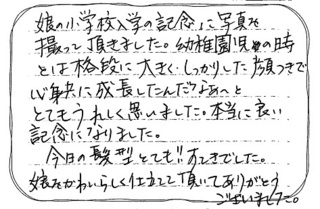 娘の小学校入学の記念に写真を
撮って頂きました。幼稚園児の時
とは格段に大きく、しっかりした顔つきで
に成長したんだなあ〜と
とてもうれしく思いました。本当に良い
記念になりました。
今日の髪型とても!!すてきでした。
娘をかわいらしく仕立て頂いてありがとう
ございました。